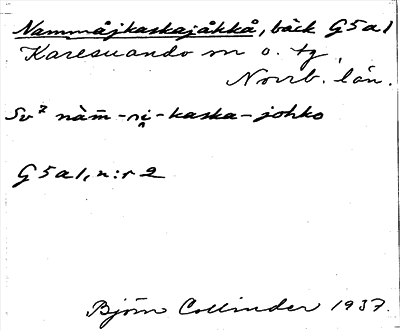 Nammåjkaskajåkkå, bäck G5a1
Karesuando sn o. tg,
Norrb. län.
Sv² nàm̄-ni̯-kaska-johko
G5a1, n:r 2
Björn Collinder 1937.